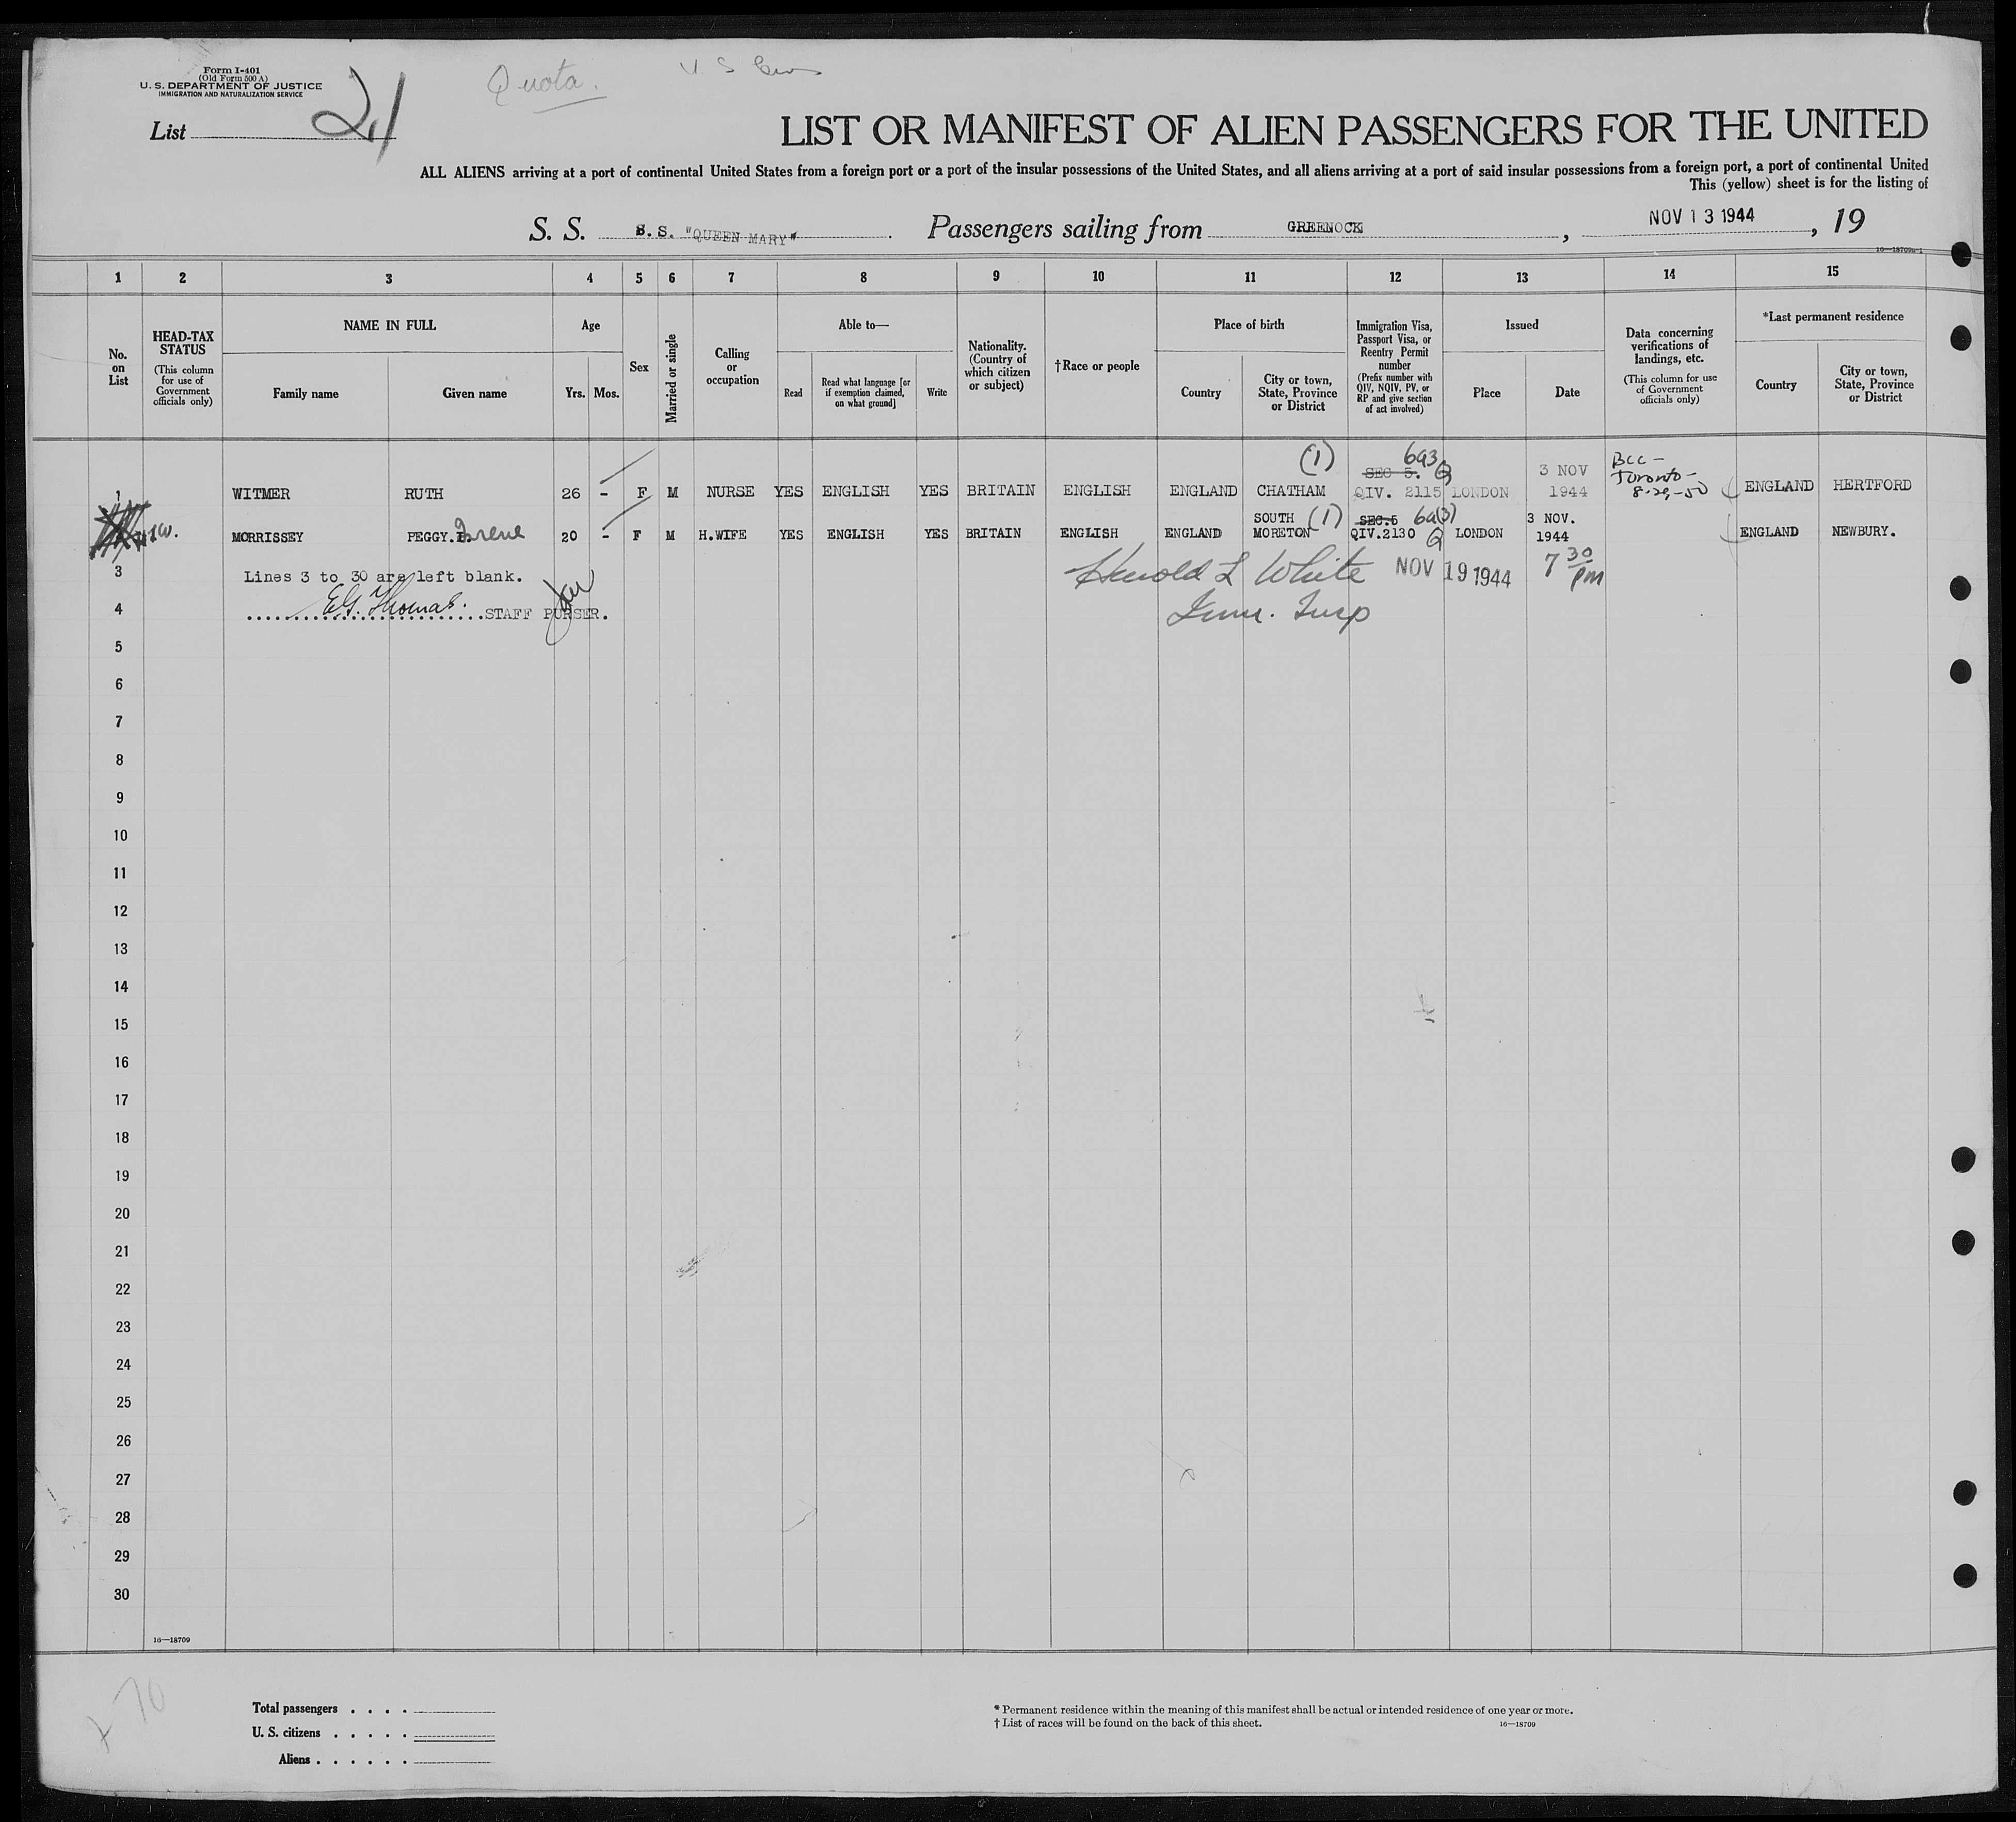 Form I-401
(Old Form 500 A)
U. S. DEPARTMENT OF JUSTICE
IMMIGRATION AND NATURALIZATION SERVICE
Quota.
U S
List 21
LIST OR MANIFEST OF ALIEN PASSENGERS FOR THE UNITED
ALL ALIENS arriving at a port of continental United States from a foreign port or a port of the insular possessions of the United States, and all aliens arriving at a port of said insular possessions from a foreign port, a port of continental United
This (yellow) sheet is for the listing of
S. S. S.S. "QUEEN MARY". Passengers sailing from GREENOCK, NOV 13 1944, 19
16—18709a-1
1 2 3 4 5 6 7 8 9 10 11 12 13 14 15
No. on List
HEAD-TAX STATUS
(This column for use of Government officials only)
NAME IN FULL
Family name
Given name
Age
Yrs. Mos.
Sex
Married or single
Calling or occupation
Able to—
Read
Read what language [or if exemption claimed, on what ground]
Write
Nationality. (Country of which citizen or subject)
†Race or people
Place of birth
Country
City or town, State, Province or District
Immigration Visa, Passport Visa, or Reentry Permit number
(Prefix number with QIV, NQIV, PV, or RP and give section of act involved)
Issued
Place
Date
Data concerning verifications of landings, etc.
(This column for use of Government officials only)
*Last permanent residence
Country
City or town, State, Province or District
(1) SEC 5. 6a3 Q 3 NOV BCC - Toronto - 8-29-50
1 WITMER RUTH 26 - F M NURSE YES ENGLISH YES BRITAIN ENGLISH ENGLAND CHATHAM QIV. 2115 LONDON 1944 ENGLAND HERTFORD
SOUTH (1) SEC.5 6a(3) 3 NOV.
MORRISSEY PEGGY.I. Irene 20 - F M H.WIFE YES ENGLISH YES BRITAIN ENGLISH ENGLAND MORETON QIV.2130 Q LONDON 1944 ENGLAND NEWBURY.
3 Lines 3 to 30 are left blank. Harold L White NOV 19 1944 7 30 pm
4 E.G. Thomas. STAFF PURSER. Imm. Insp
5
6
7
8
9
10
11
12
13
14
15
16
17
18
19
20
21
22
23
24
25
26
27
28
29
30
16—18709
70
Total passengers . . . .
U. S. citizens . . . . .
Aliens . . . . . .
* Permanent residence within the meaning of this manifest shall be actual or intended residence of one year or more.
† List of races will be found on the back of this sheet.
16—18709